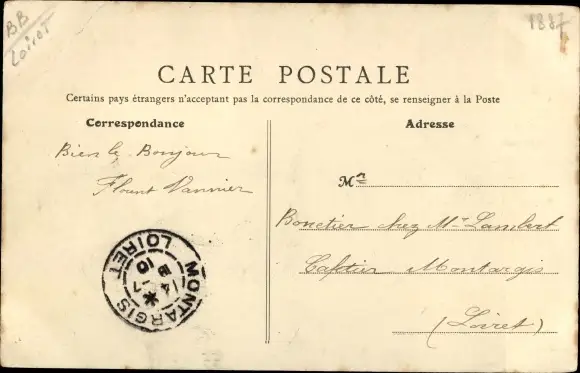 BB
Loiret
1887
CARTE POSTALE
Certains pays étrangers n'acceptant pas la correspondance de ce côté, se renseigner à la Poste
Correspondance
Adresse
Bien le Bonjour
Vannier
M
chez Mr Lambert
Montargis
(Loiret)
MONTARGIS
LOIRET